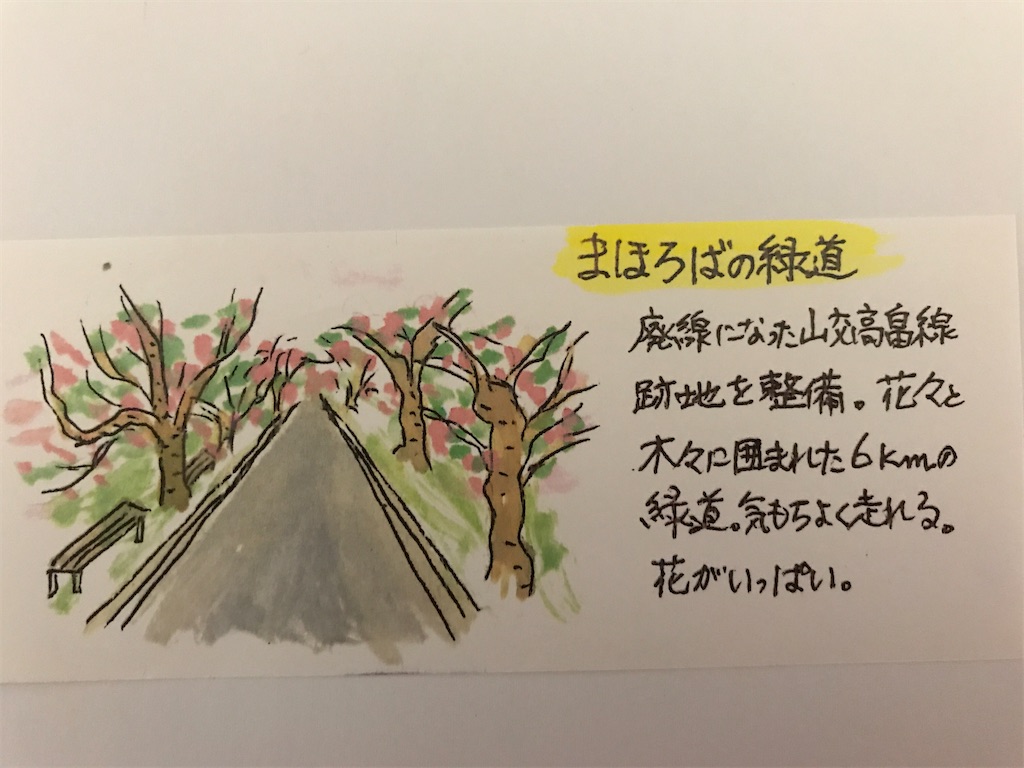 まほろばの緑道
廃線になった山交高畠線
跡地を整備。花々と
木々に囲まれた6kmの
緑道。気もちよく走れる。
花がいっぱい。